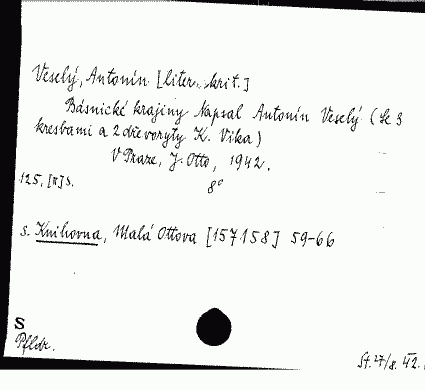 Veselý, Antonín [liter. krit.]
Básnické krajiny Napsal Antonín Veselý (Se 3
kresbami a 2 dřevoryty K. Vika)
V Praze, J. Otto, 1942.
125, [II] s. 8°
s. Knihovna, Malá Ottova [157158] 59-66
S
Pfldr.
St. 27/8. VI2.